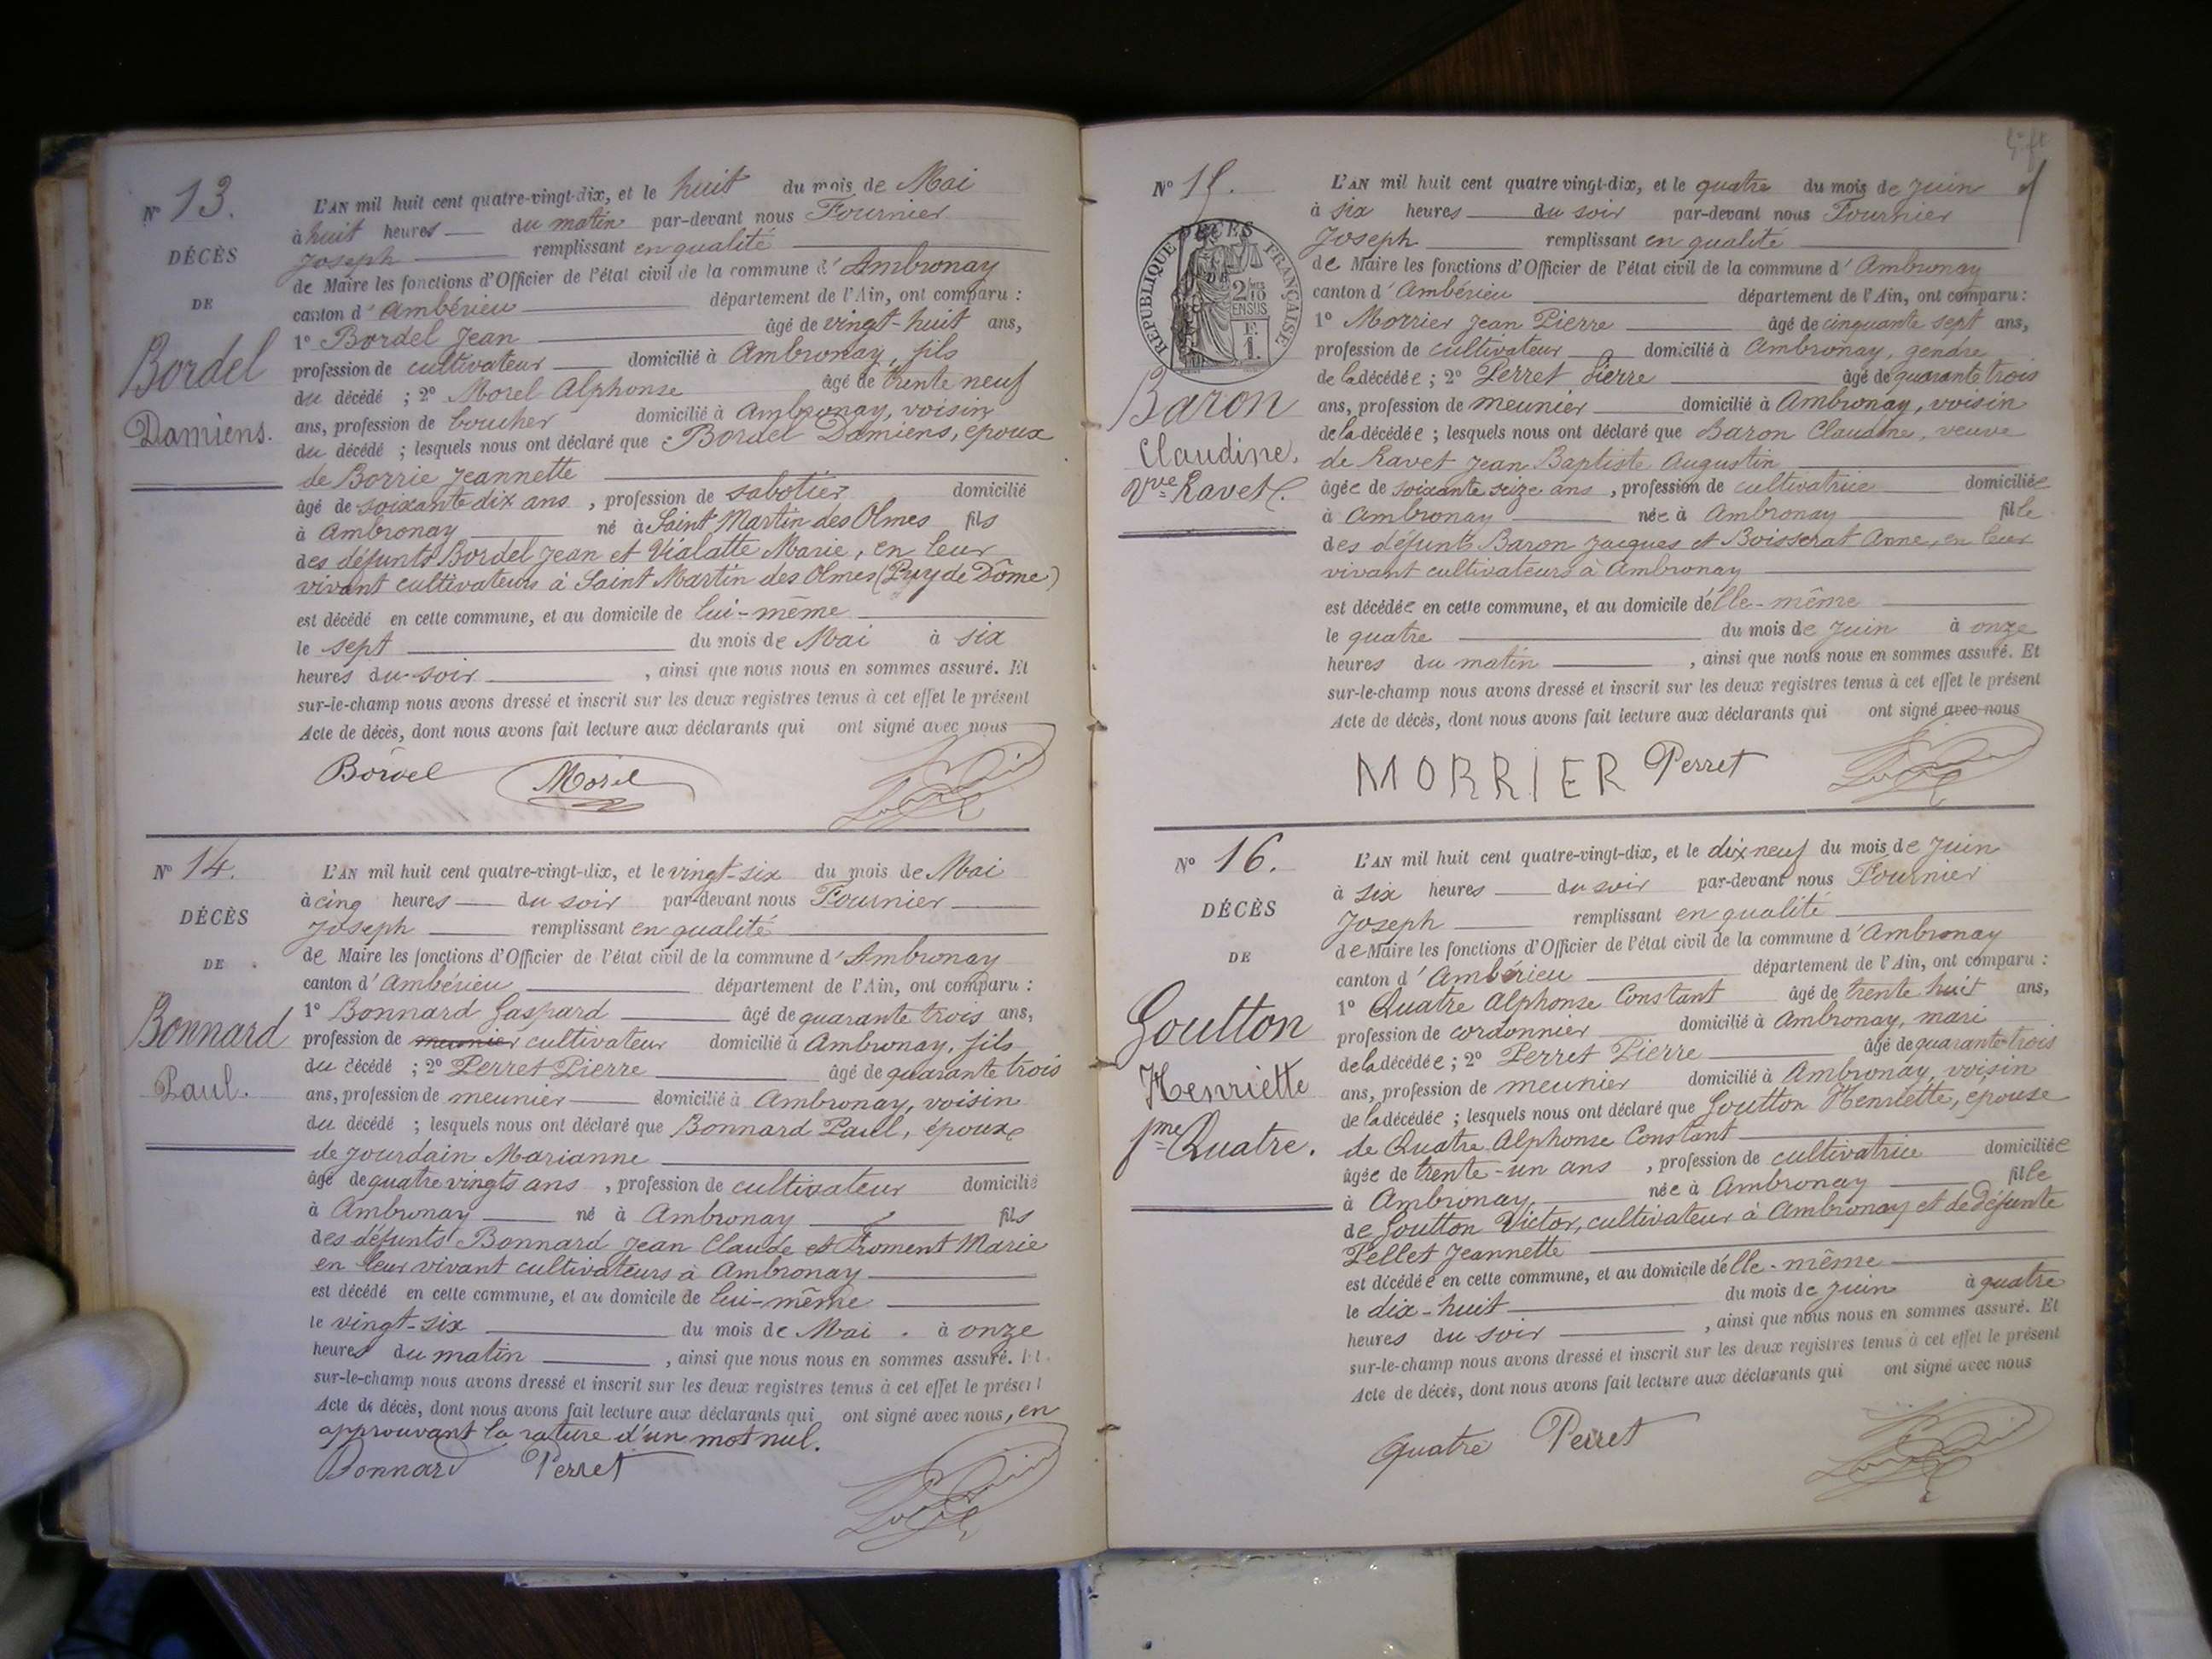 N° 13.
DÉCÈS
DE
Bordel
Damiens.
L'AN mil huit cent quatre-vingt-dix, et le huit du mois de Mai
à huit heures du matin par-devant nous Fournier
Joseph remplissant en qualité
de Maire les fonctions d'Officier de l'état civil de la commune d'Ambronay
canton d'Ambérieu département de l'Ain, ont comparu :
1° Bordel Jean âgé de vingt-huit ans,
profession de cultivateur domicilié à Ambronay, fils
du décédé ; 2° Morel Alphonse âgé de trente neuf
ans, profession de boucher domicilié à Ambronay, voisin
du décédé ; lesquels nous ont déclaré que : Bordel Damiens, époux
de Borrie Jeannette
âgé de soixante dix ans, profession de sabotier domicilié
à Ambronay né à Saint Martin des Olmes fils
des défunts Bordel Jean et Vialatte Marie, en leur
vivant cultivateurs à Saint Martin des Olmes (Puy de Dôme)
est décédé en cette commune, et au domicile de lui-même
le sept du mois de Mai à six
heures du soir, ainsi que nous nous en sommes assuré. Et
sur-le-champ nous avons dressé et inscrit sur les deux registres tenus à cet effet le présent
Acte de décès, dont nous avons fait lecture aux déclarants qui ont signé avec nous
Bordel Morel
N° 14.
DÉCÈS
DE
Bonnard
Paul.
L'AN mil huit cent quatre-vingt-dix, et le vingt-six du mois de Mai
à cinq heures du soir par-devant nous Fournier
Joseph remplissant en qualité
de Maire les fonctions d'Officier de l'état civil de la commune d'Ambronay
canton d'Ambérieu département de l'Ain, ont comparu :
1° Bonnard Gaspard âgé de quarante trois ans,
profession de meunier cultivateur domicilié à Ambronay, fils
du décédé ; 2° Perret Pierre âgé de quarante trois
ans, profession de meunier domicilié à Ambronay, voisin
du décédé ; lesquels nous ont déclaré que Bonnard Paul, époux
de Jourdain Marianne
âgé de quatre vingts ans, profession de cultivateur domicilié
à Ambronay né à Ambronay fils
des défunts Bonnard Jean Claude et Froment Marie
en leur vivant cultivateurs à Ambronay
est décédé en cette commune, et au domicile de lui-même
le vingt-six du mois de Mai . à onze
heures du matin, ainsi que nous nous en sommes assuré. Et
sur-le-champ nous avons dressé et inscrit sur les deux registres tenus à cet effet le présent
Acte de décès, dont nous avons fait lecture aux déclarants qui ont signé avec nous, en
approuvant la rature d'un mot nul.
Bonnard Perret
N° 15.
RÉPUBLIQUE FRANÇAISE
DÉCÈS
Baron
Claudine,
Vve Ravet.
L'AN mil huit cent quatre vingt-dix, et le quatre du mois de Juin
à six heures du soir par-devant nous Fournier
Joseph remplissant en qualité
de Maire les fonctions d'Officier de l'état civil de la commune d'Ambronay
canton d'Ambérieu département de l'Ain, ont comparu :
1° Morrier Jean Pierre âgé de cinquante sept ans,
profession de cultivateur domicilié à Ambronay, gendre
de la décédée ; 2° Perret Pierre âgé de quarante trois
ans, profession de meunier domicilié à Ambronay, voisin
de la décédée ; lesquels nous ont déclaré que Baron Claudine, veuve
de Ravet Jean Baptiste Augustin
âgée de soixante seize ans, profession de cultivatrice domiciliée
à Ambronay née à Ambronay fille
des défunts Baron Jacques et Boisserat Anne, en leur
vivant cultivateurs à Ambronay
est décédée en cette commune, et au domicile d'elle-même
le quatre du mois de Juin à onze
heures du matin, ainsi que nous nous en sommes assuré. Et
sur-le-champ nous avons dressé et inscrit sur les deux registres tenus à cet effet le présent
Acte de décès, dont nous avons fait lecture aux déclarants qui ont signé avec nous
MORRIER Perret
N° 16.
DÉCÈS
DE
Goutton
Henriette
fme Quatre.
L'AN mil huit cent quatre-vingt-dix, et le dix neuf du mois de Juin
à six heures du soir par-devant nous Fournier
Joseph remplissant en qualité
de Maire les fonctions d'Officier de l'état civil de la commune d'Ambronay
canton d'Ambérieu département de l'Ain, ont comparu :
1° Quatre Alphonse Constant âgé de trente huit ans,
profession de cordonnier domicilié à Ambronay, mari
de la décédée ; 2° Perret Pierre âgé de quarante-trois
ans, profession de meunier domicilié à Ambronay, voisin
de la décédée ; lesquels nous ont déclaré que Goutton Henriette, épouse
de Quatre Alphonse Constant
âgée de trente-un ans, profession de cultivatrice domiciliée
à Ambronay née à Ambronay fille
de Goutton Victor, cultivateur à Ambronay et de défunte
Pellet Jeannette
est décédée en cette commune, et au domicile d'elle-même
le dix-huit du mois de Juin à quatre
heures du soir, ainsi que nous nous en sommes assuré. Et
sur-le-champ nous avons dressé et inscrit sur les deux registres tenus à cet effet le présent
Acte de décès, dont nous avons fait lecture aux déclarants qui ont signé avec nous
Quatre Perret